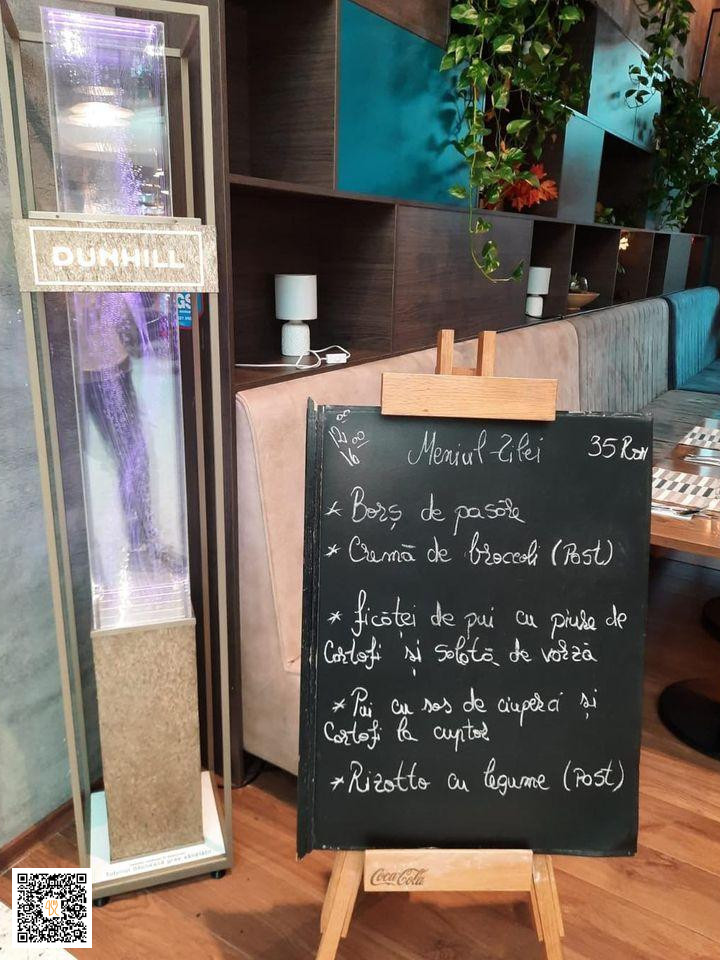 DUNHILL
12 00
16 00
Meniul Zilei 35 Ron
* Borș de pasăre
* Cremă de broccoli (Post)
* ficăței de pui cu piure de
Cartofi și salată de varză
* Pui cu sos de ciuperci și
Cartofi la cuptor
* Rizotto cu legume (Post)
Coca-Cola